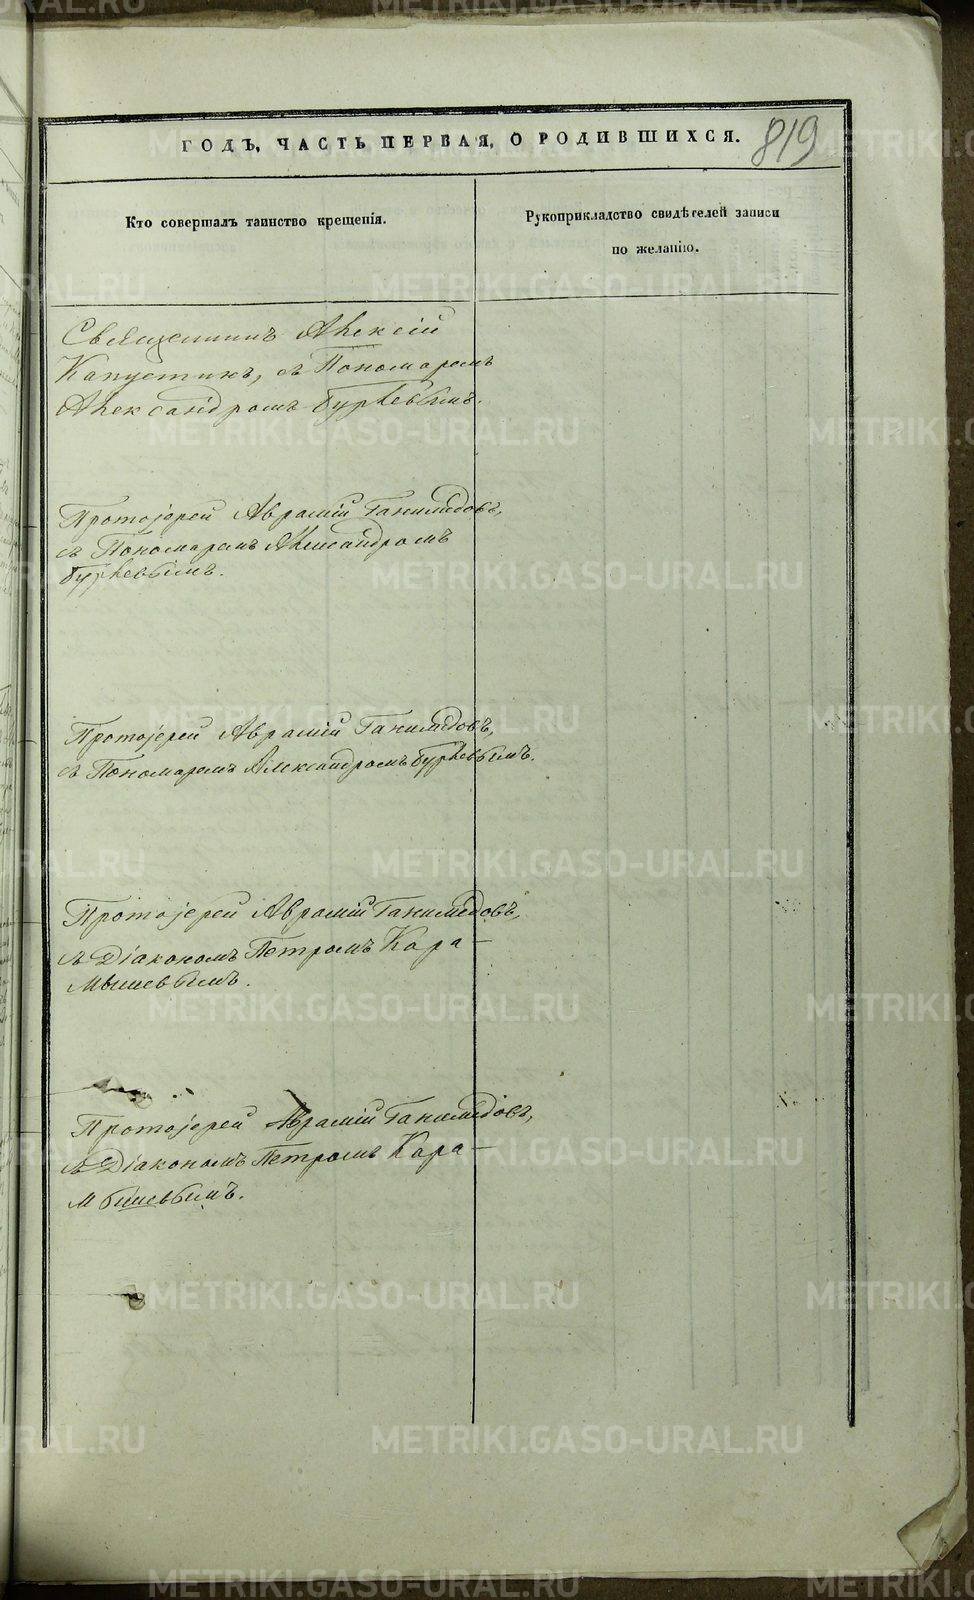 ГОДЪ, ЧАСТЬ ПЕРВАЯ, О РОДИВШИХСЯ.
819
Кто совершалъ таинство крещенія.
Рукоприкладство свидѣтелей записи
по желанію.
Священникъ Алексій
Капустинъ, съ Пономаремъ
Александромъ Бурлевымъ.
Протоіерей Аврамій Ганимедовъ,
съ Пономаремъ Александромъ
Бурлевымъ.
Протоіерей Аврамій Ганимедовъ,
съ Пономаремъ Александромъ Бурлевымъ.
Протоіерей Аврамій Ганимедовъ,
съ Діакономъ Петромъ Кара-
мышевымъ.
Протоіерей Аврамій Ганимедовъ,
съ Діакономъ Петромъ Кара-
мышевымъ.
METRIKI.GASO-URAL.RU